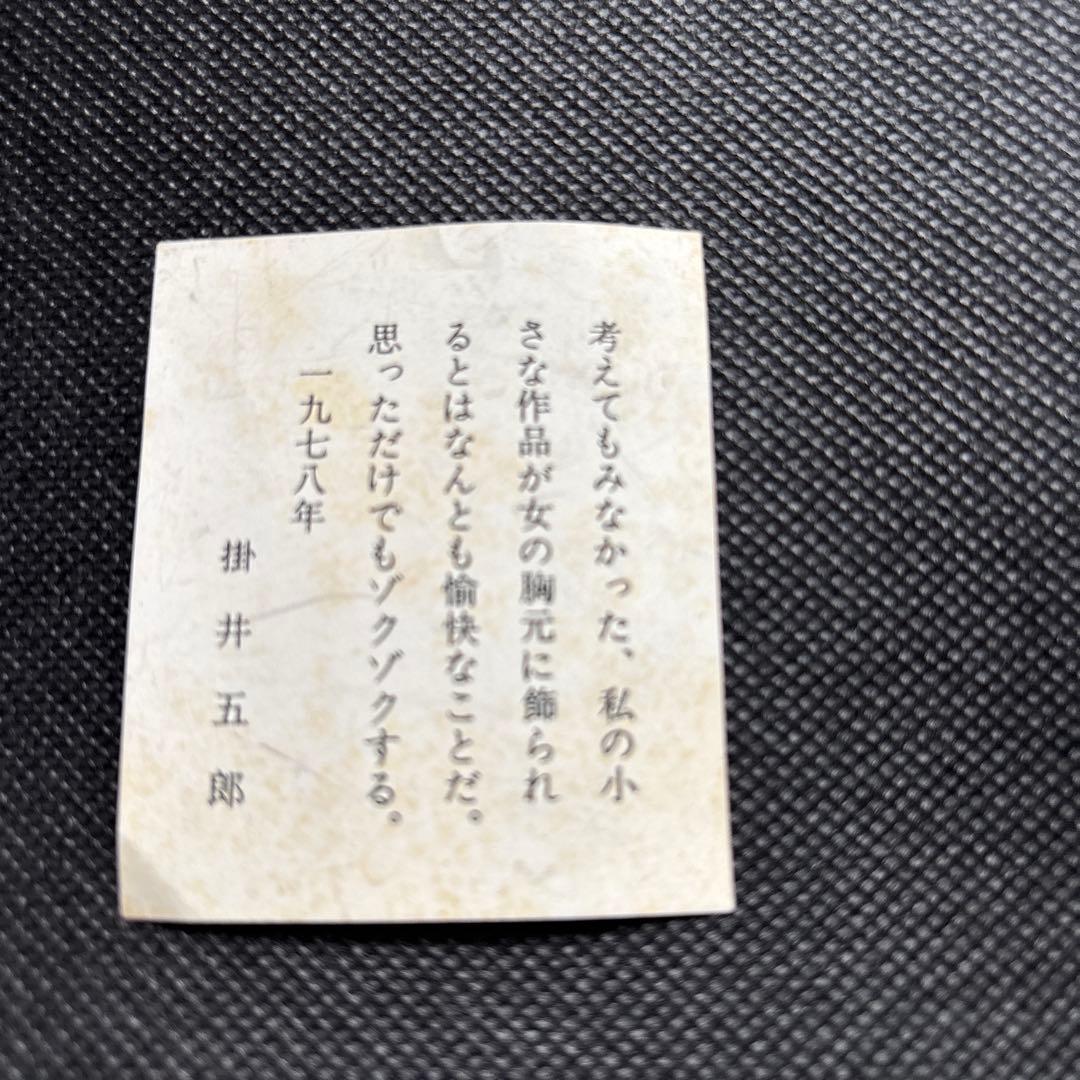 考えてもみなかった、私の小
さな作品が女の胸元に飾られ
るとはなんとも愉快なことだ。
思っただけでもゾクゾクする。
一九七八年
掛井五郎